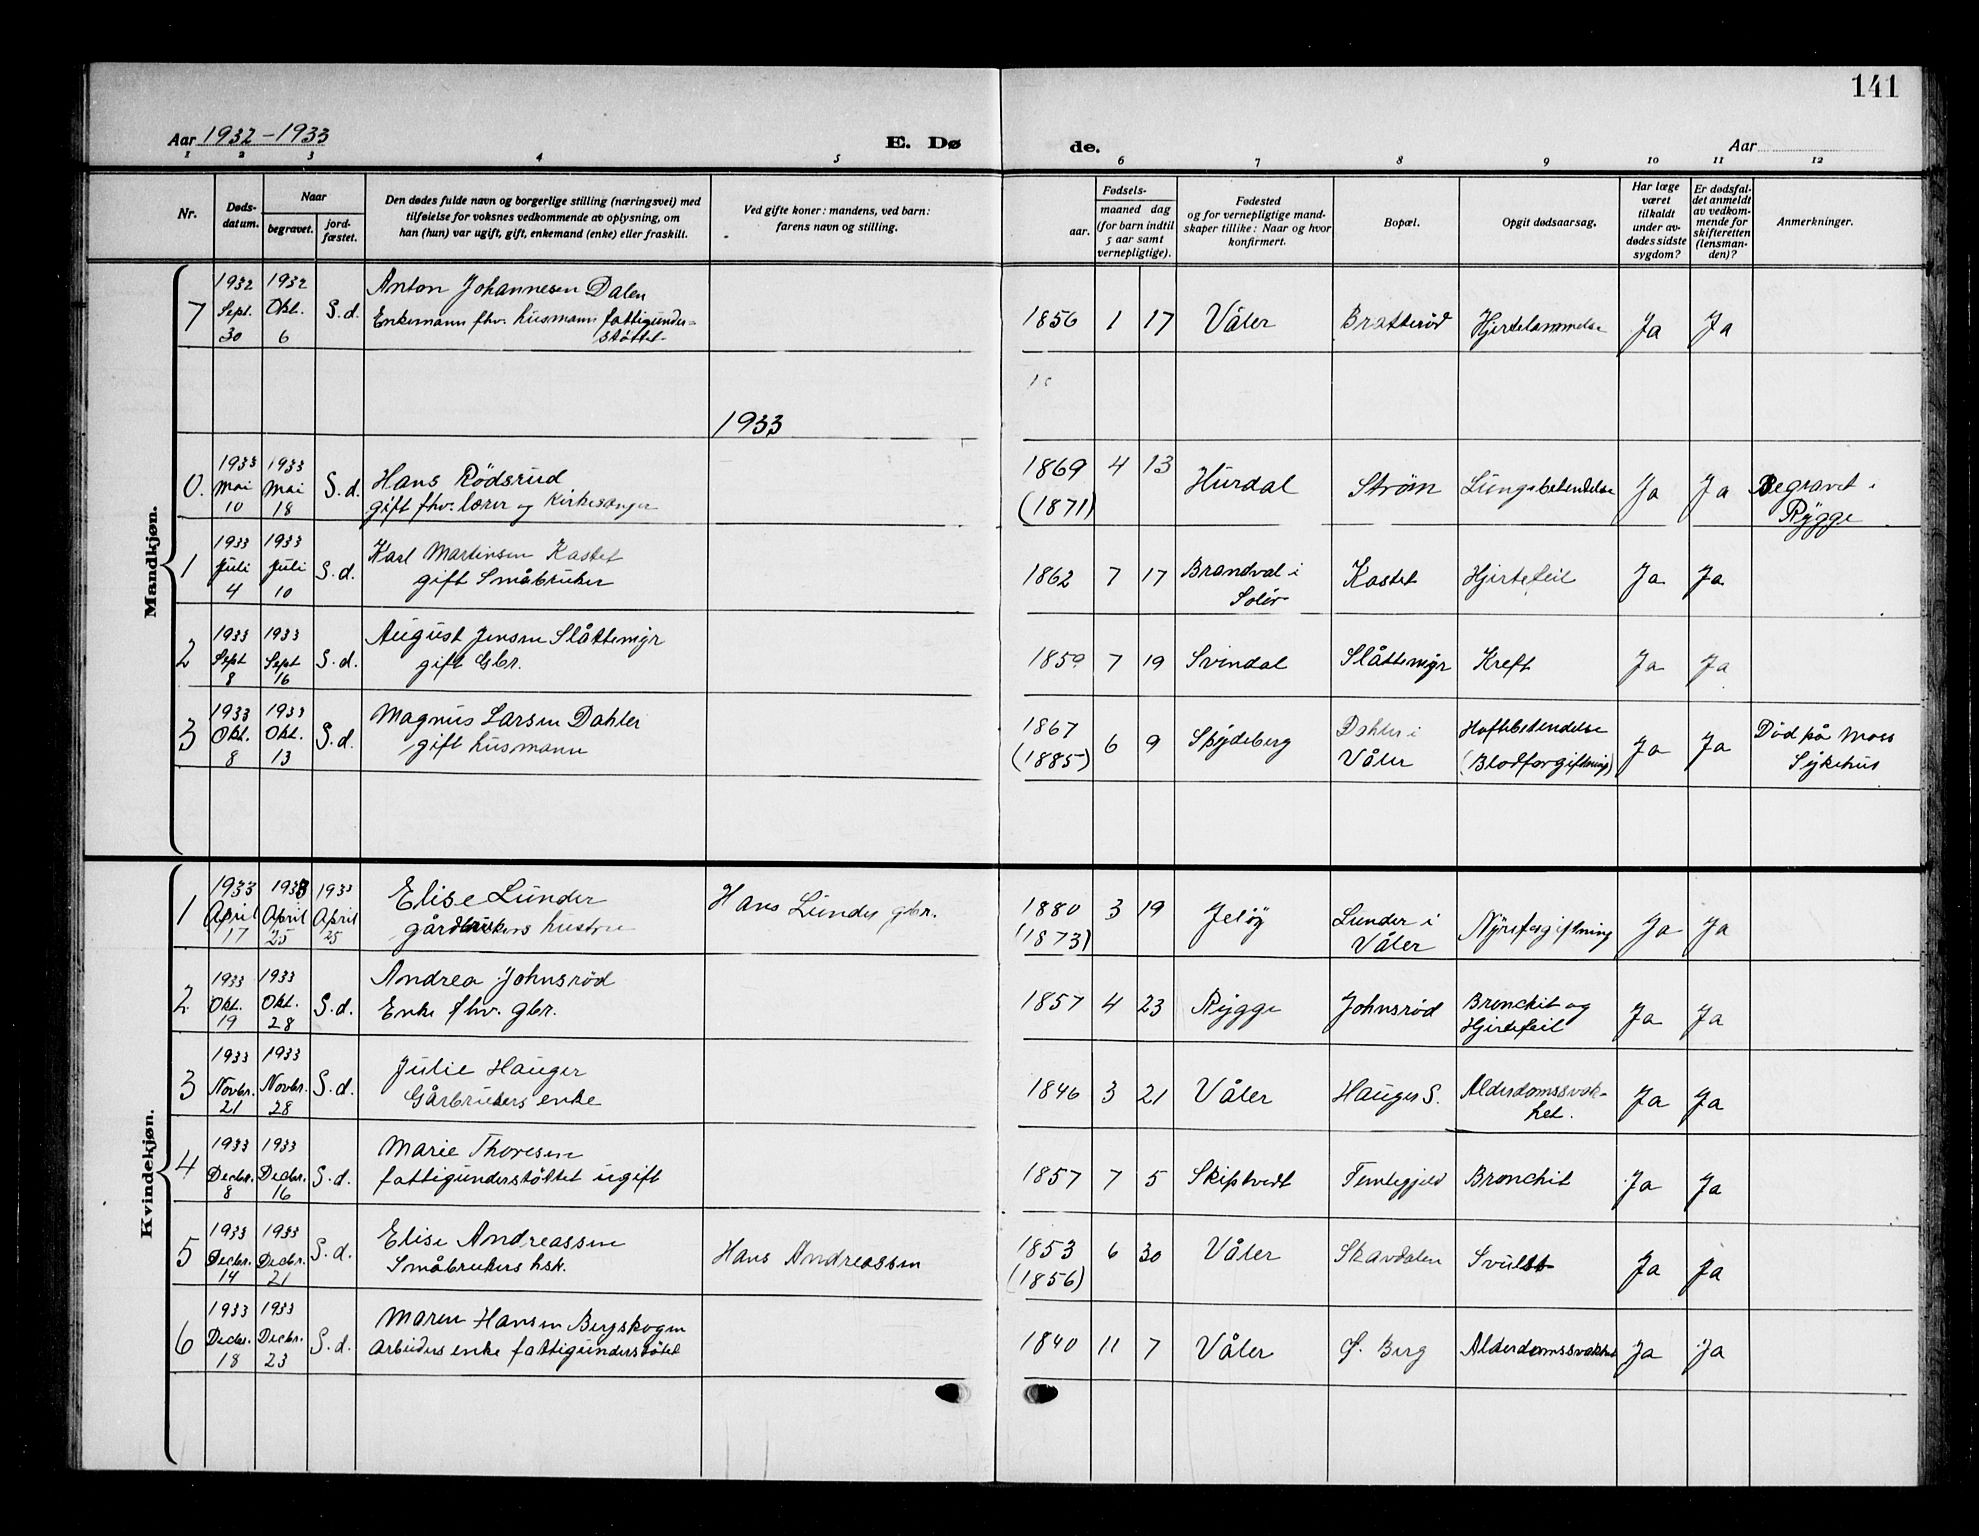 141
Aar 1932-1933 E. Dø de. Aar
1 2 3 4 5 6 7 8 9 10 11 12
Nr. Døds-datum. Naar begravet. jord-fæstet. Den dødes fulde navn og borgerlige stilling (næringsvei) med tilføielse for voksnes vedkommende av oplysning, om han (hun) var ugift, gift, enkemand (enke) eller fraskilt. Ved gifte koner: mandens, ved barn: farens navn og stilling. Fødsels- aar. maaned dag (for barn indtil 5 aar samt vernepligtige). Fødested og for vernepligtige mand-skaper tillike: Naar og hvor konfirmert. Bopæl. Opgit dødsaarsag. Har læge været tilkaldt under av-dødes sidste sygdom? Er dødsfal-det anmeldt av vedkom-mende for skifteretten (lensman-den)? Anmerkninger.
Mandkjøn.
7 1932 Sept. 30 1932 Okt. 6 S.d. Anton Johannesen Dalen
Enkemann fhv. husmann fattigunder-støttet 1856 1 17 Våler Bratterød Hjertelammelse Ja Ja
1933
0. 1933 Mai 10 1933 Mai 18 S.d. Hans Rödsrud
gift fhv. lærer og kirkesanger 1869 (1871) 4 13 Hurdal Strøm Lungebetendelse Ja Ja Begravet i Rygge
1 1933 Juli 4 1933 Juli 10 S.d. Karl Martinsen Kastet
gift Småbruker 1862 7 17 Brandval i Solør Kastet Hjertefeil Ja Ja
2 1933 Sept 8 1933 Sept 16 S.d. August Jensen Slåttemyr
gift Gbr. 1859 7 19 Svindal Slåttemyr Kreft Ja Ja
3 1933 Okt. 8 1933 Okt. 13 S.d. Magnus Larsen Dahler
gift husmann 1867 (1885) 6 9 Spydeberg Dahler i Våler Hoftebetendelse (Blodforgiftning) Ja Ja Död på Moss Sykehus
Kvindekjøn.
1 1933 April 17 1933 April 25 1933 April 25 Elise Lunder
gårdbrukers hustru Hans Lunder gbr. 1880 (1873) 3 19 Jeløy Lunder i Våler Nyreforgiftning Ja Ja
2 1933 Okt. 19 1933 Okt. 28 S.d. Andrea Johnsrød
Enke fhv. gbr. 1857 4 23 Rygge Johnsrød Bronchit og Hjertefeil Ja Ja
3 1933 Novbr. 21 1933 Novbr. 28 S.d. Julie Hauger
Gårbrukers enke 1846 3 21 Våler Hauger S. Alderdomssvak-het. Ja Ja
4 1933 Decbr. 8 1933 Decbr. 16 S.d. Marie Thoresen
fattigunderstöttet ugift 1857 7 5 Skiptvedt Bronchit Ja Ja
5 1933 Decbr. 14 1933 Decbr. 21 S.d. Elise Andreassen
Småbrukers hsk. Hans Andreassen 1853 (1856) 6 30 Våler Skavdalen Svulst Ja Ja
6 1933 Decbr. 18 1933 Decbr. 23 S.d. Maren Hansen Bergskogen
Arbeiders enke fattigunderstötet 1840 11 7 Våler Ø. Berg Alderdomssvakhet Ja Ja